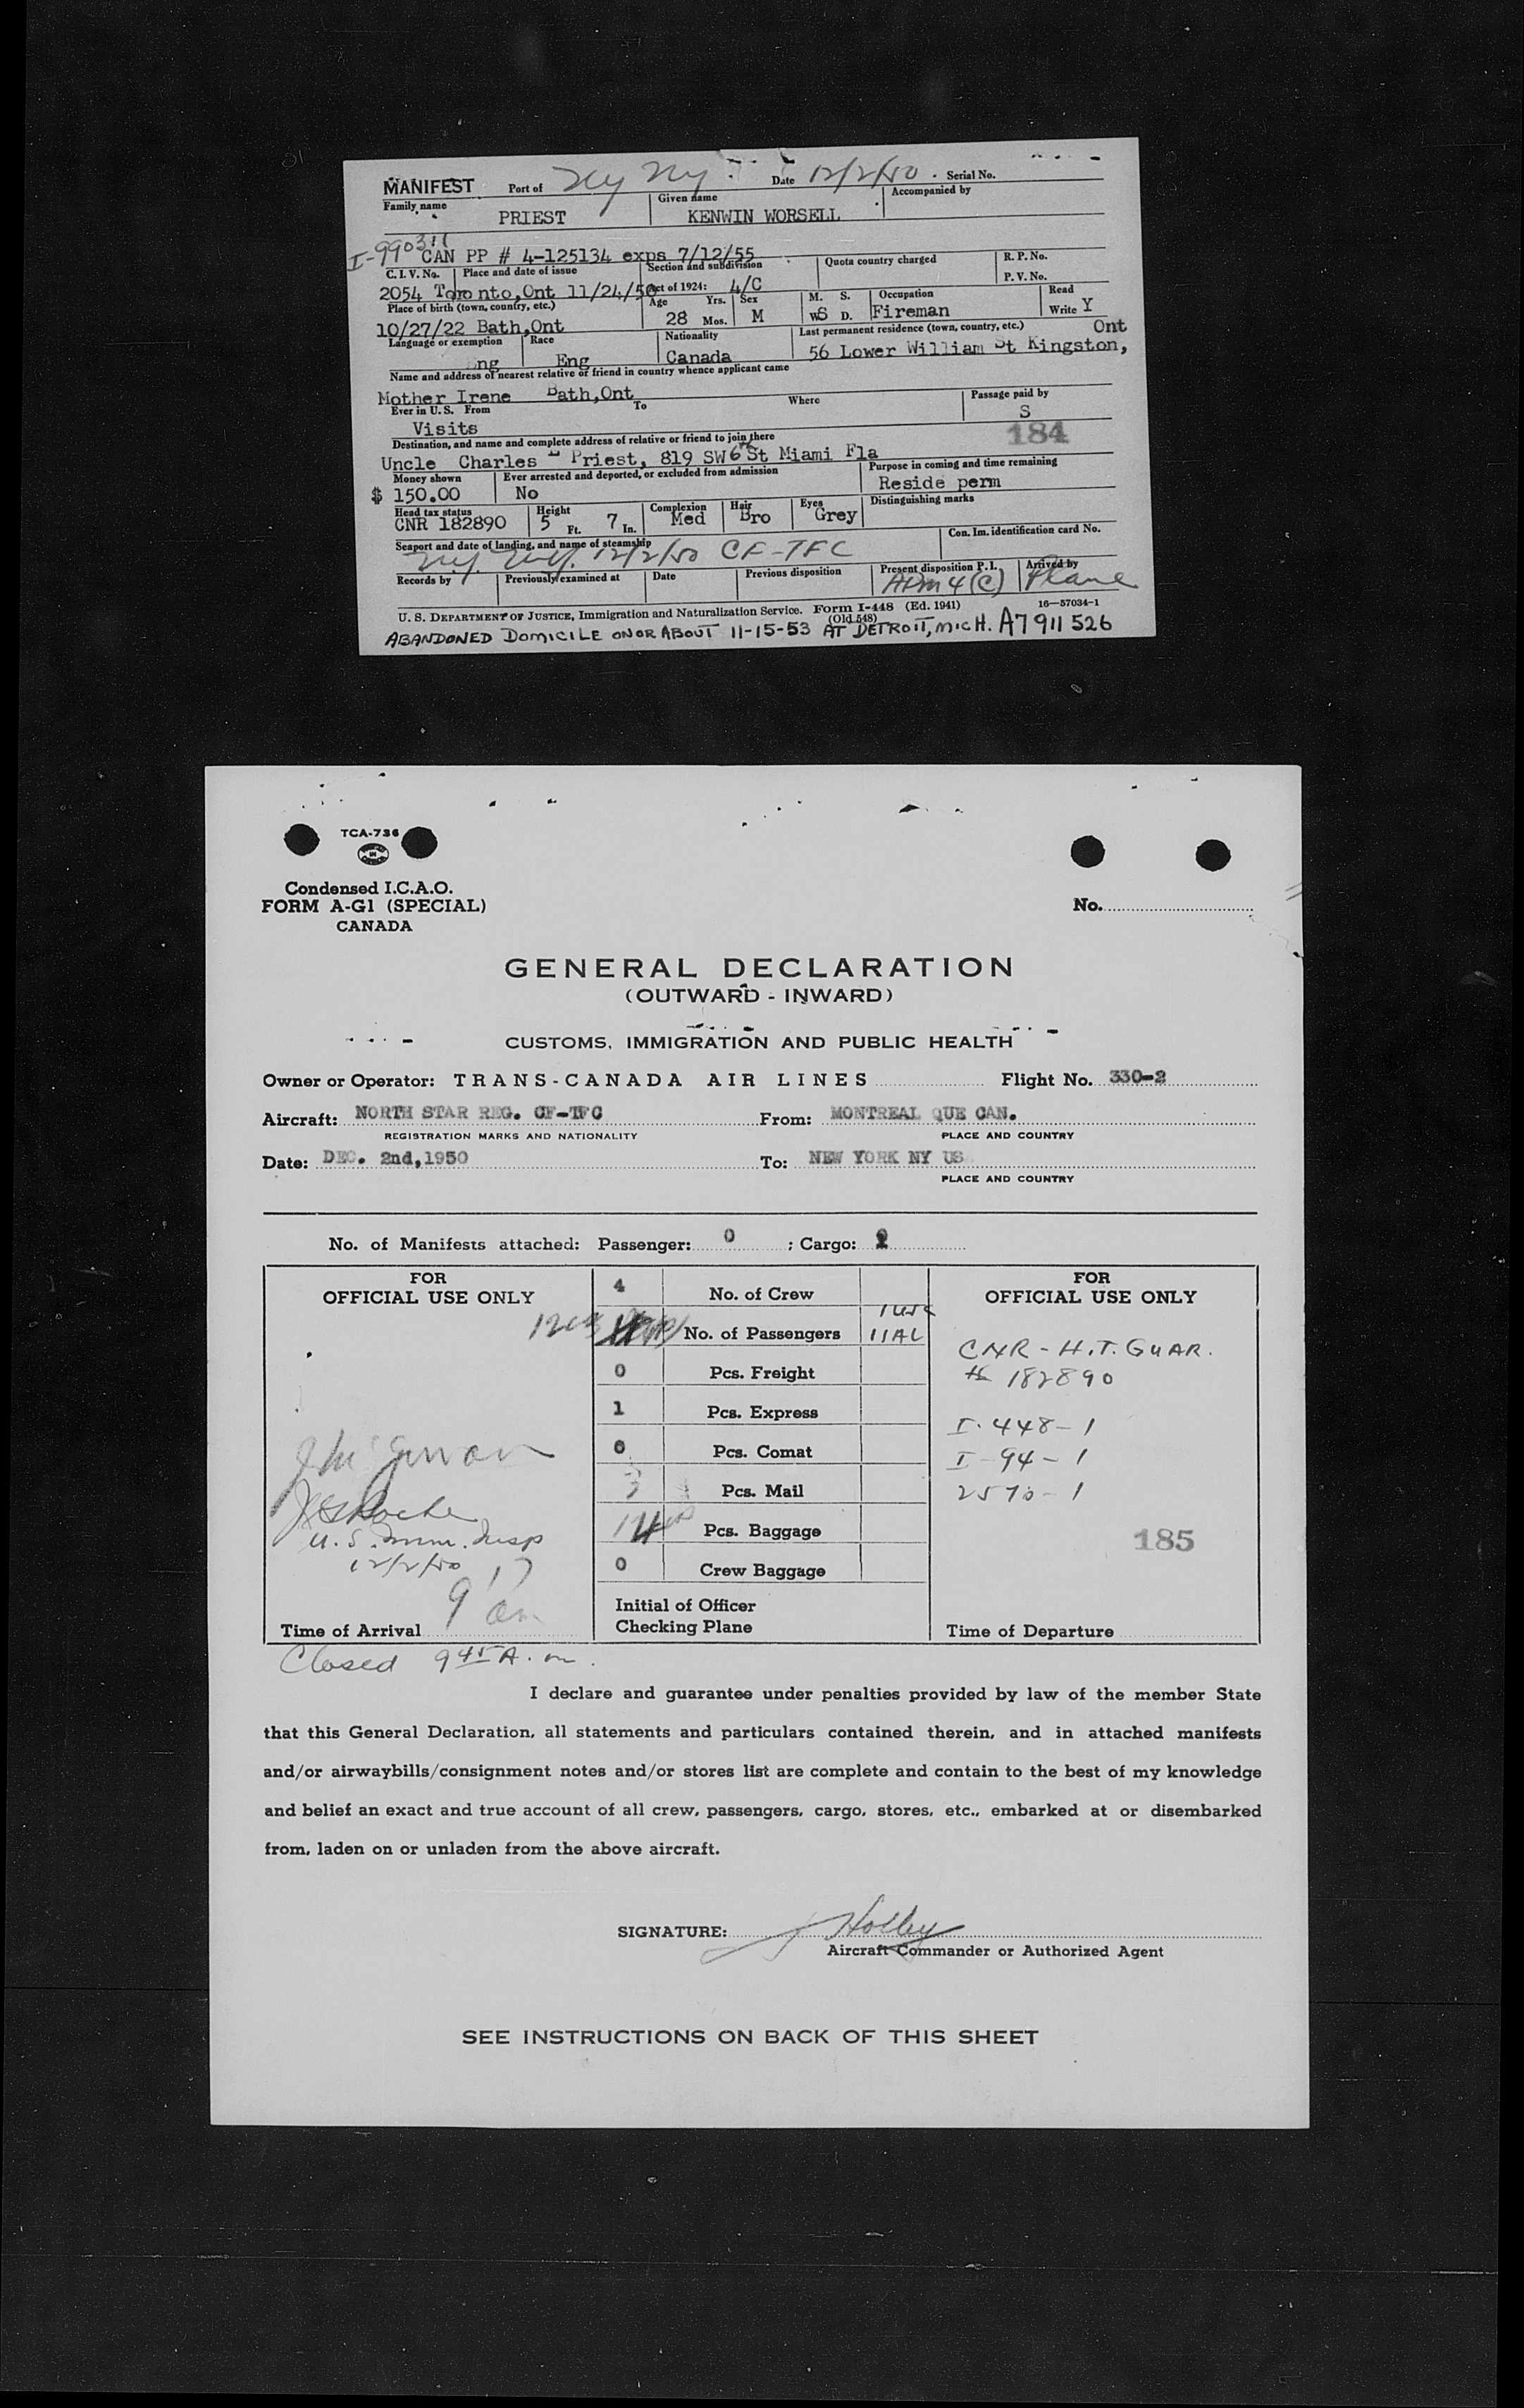 MANIFEST Port of Ny Ny. Date 12/2/50 Serial No.
Family name Given name Accompanied by
PRIEST KENWIN WORSELL
I-990311
CAN PP # 4-125134 exps 7/12/55
C. I. V. No. Place and date of issue Section and subdivision Quota country charged R. P. No.
P. V. No.
2054 Toronto,Ont 11/24/50 Act of 1924: 4/C
Place of birth (town, country, etc.) Age Yrs. Sex M. S. Occupation Read
10/27/22 Bath,Ont 28 Mos. M WS D. Fireman Write Y
Language or exemption Race Nationality Last permanent residence (town, country, etc.) Ont
ng Eng Canada 56 Lower William St Kingston,
Name and address of nearest relative or friend in country whence applicant came
Mother Irene Bath,Ont
Ever in U. S. From To Where Passage paid by
Visits S
184
Destination, and name and complete address of relative or friend to join there
Uncle Charles E Priest, 819 SW 6th St Miami Fla
Money shown Ever arrested and deported, or excluded from admission Purpose in coming and time remaining
$ 150.00 No Reside perm
Head tax status Height Complexion Hair Eyes Distinguishing marks
CNR 182890 5 Ft. 7 In. Med Bro Grey
Seaport and date of landing, and name of steamship Con. Im. identification card No.
N.Y. N.Y. 12/2/50 CF-TFC
Records by Previously examined at Date Previous disposition Present disposition P. I. Arrived by
Adm 4(C) Plane
U. S. DEPARTMENT OF JUSTICE, Immigration and Naturalization Service. Form I-448 (Ed. 1941) 16—57034-1
(Old 548)
ABANDONED DOMICILE ON OR ABOUT 11-15-53 AT DETROIT, MICH. A7 911 526
TCA-736
Condensed I.C.A.O.
FORM A-G1 (SPECIAL)
CANADA
No.
GENERAL DECLARATION
(OUTWARD - INWARD)
CUSTOMS, IMMIGRATION AND PUBLIC HEALTH
Owner or Operator: TRANS-CANADA AIR LINES Flight No. 330-2
Aircraft: NORTH STAR REG. CF-TFC From: MONTREAL QUE CAN.
REGISTRATION MARKS AND NATIONALITY PLACE AND COUNTRY
Date: DEC. 2nd,1950 To: NEW YORK NY US
PLACE AND COUNTRY
No. of Manifests attached: Passenger: 0 ; Cargo:
FOR
OFFICIAL USE ONLY
4 No. of Crew
No. of Passengers 11AL
0 Pcs. Freight
1 Pcs. Express
0 Pcs. Comat
3 Pcs. Mail
14 Pcs. Baggage
0 Crew Baggage
Initial of Officer
Checking Plane
U. S. Imm. Insp
12/2/50
9 am
Time of Arrival
FOR
OFFICIAL USE ONLY
CNR - H.T. GUAR.
# 182890
I-448-1
I-94-1
2570-1
185
Time of Departure
Closed 9 45 A.m.
I declare and guarantee under penalties provided by law of the member State
that this General Declaration, all statements and particulars contained therein, and in attached manifests
and/or airwaybills/consignment notes and/or stores list are complete and contain to the best of my knowledge
and belief an exact and true account of all crew, passengers, cargo, stores, etc., embarked at or disembarked
from, laden on or unladen from the above aircraft.
SIGNATURE: Holley
Aircraft Commander or Authorized Agent
SEE INSTRUCTIONS ON BACK OF THIS SHEET